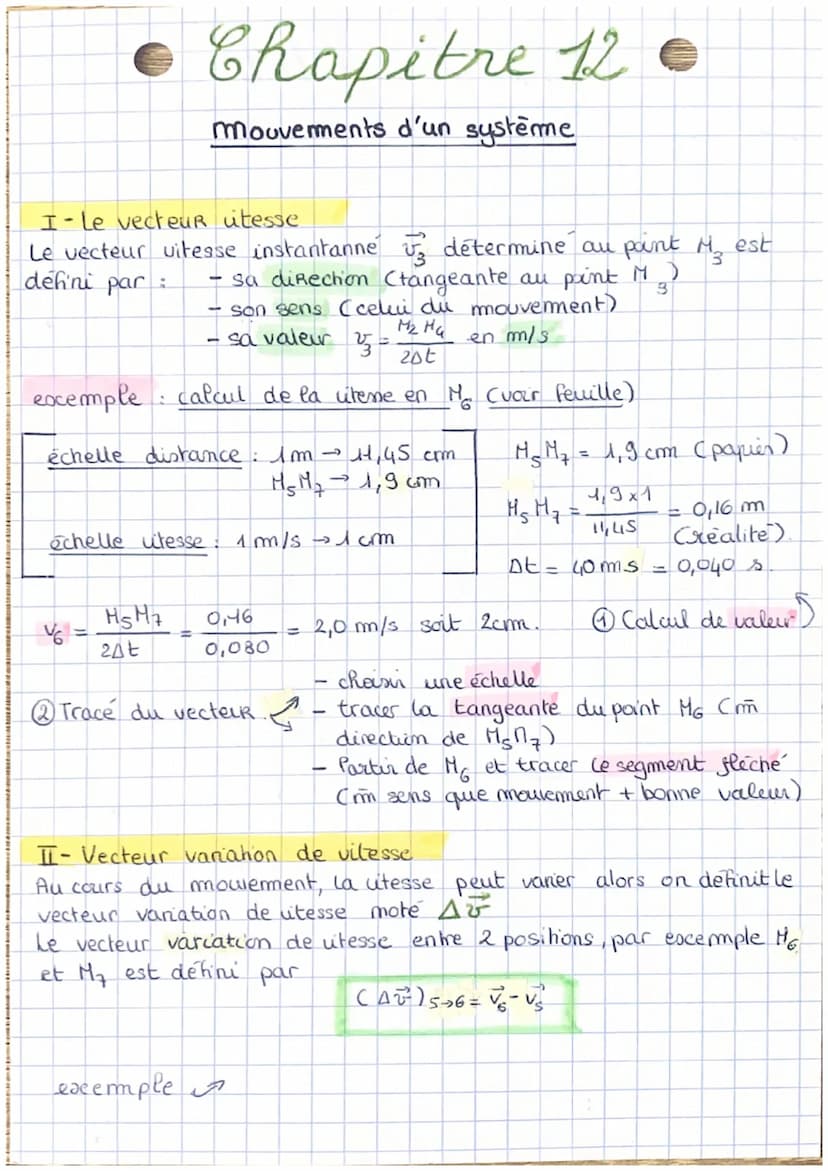 Chapitre 12
Mouvements d'un système
I - Le vecteur vitesse
Le vecteur vitesse instantanné v⃗₃ déterminé au point M₃ est
défini par : - sa direction (tangeante au point M₃)
- son sens (celui du mouvement)
- sa valeur v₃ = M₂M₄ / 2Δt en m/s
exemple : calcul de la vitesse en M₆ (voir feuille)
échelle distance : 1m → 11,45 cm
M₅M₇ → 1,9 cm
échelle vitesse : 1 m/s → 1 cm
M₅M₇ = 1,9 cm (papier)
M₅M₇ = 1,9 x 1 / 11,45 = 0,16 m
(réalité)
Δt = 40 ms = 0,040 s.
v₆ = M₅M₇ / 2Δt = 0,16 / 0,080 = 2,0 m/s soit 2cm. ① Calcul de valeur
- choisir une échelle
② Tracé du vecteur - tracer la tangeante du point M₆ (m̄
direction de M₅M₇)
- Partir de M₆ et tracer le segment fléché
(m̄ sens que mouvement + bonne valeur)
II - Vecteur variation de vitesse
Au cours du mouvement, la vitesse peut varier alors on définit le
vecteur variation de vitesse noté Δv⃗
Le vecteur variation de vitesse entre 2 positions, par exemple M₆
et M₇ est défini par
(Δv⃗)₅→₆ = v⃗₆ - v⃗₅
exemple ↗